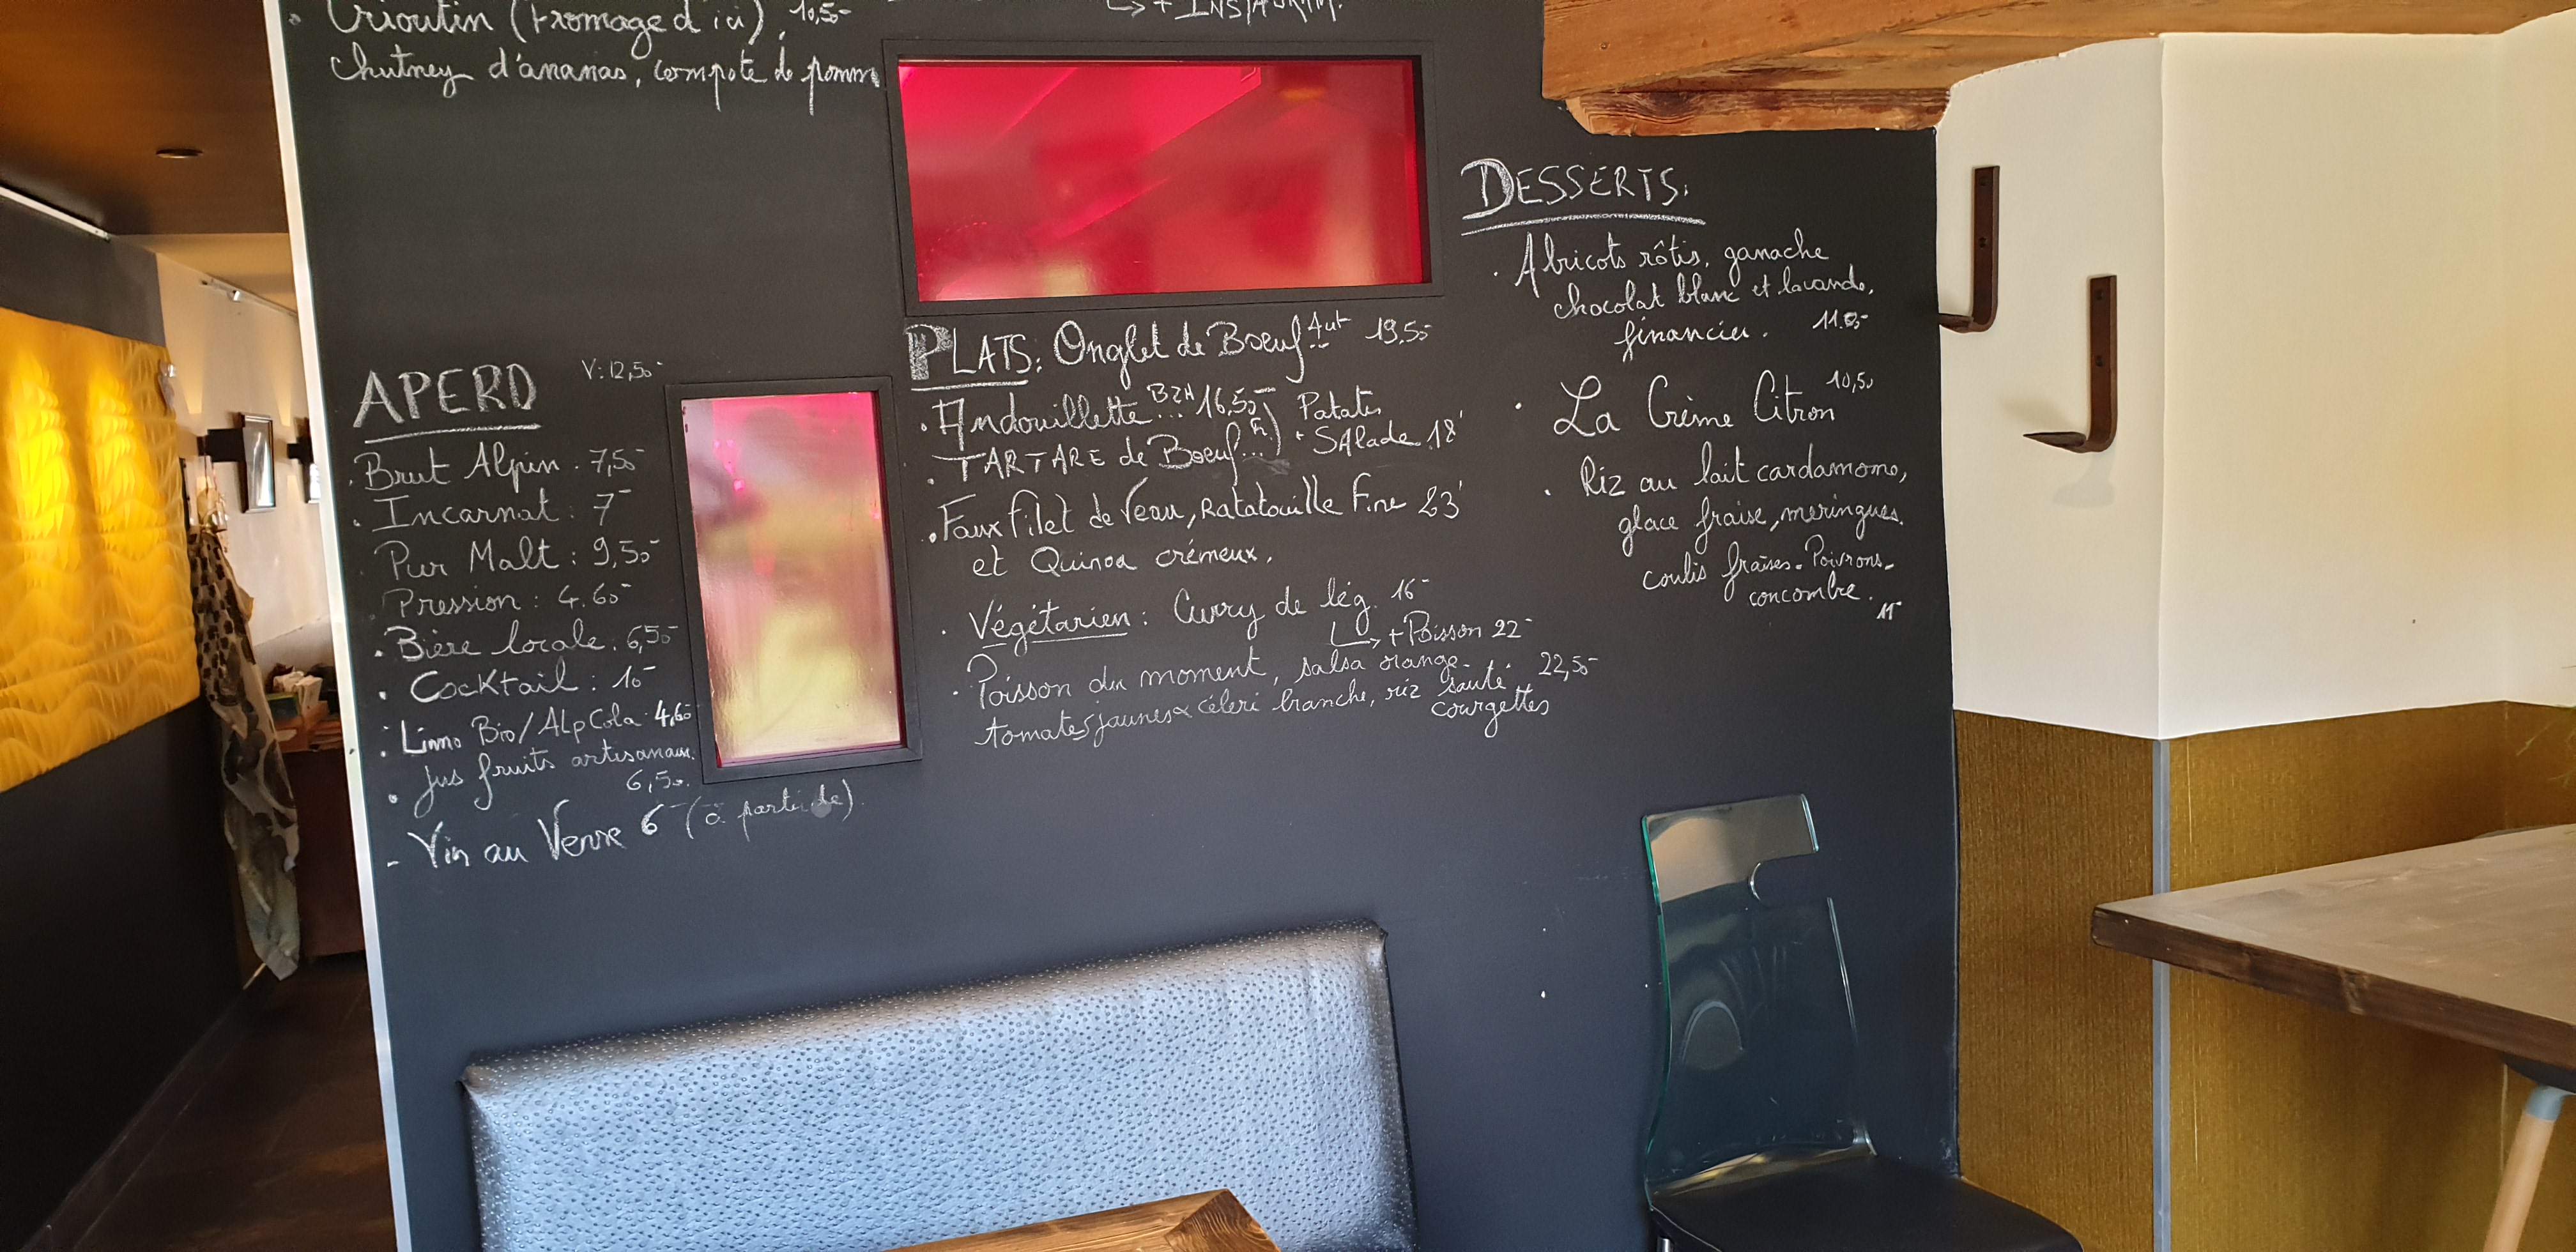 . Crioutin (Fromage d'ici). 10,50-
chutney d'ananas, compote de pomm
↳ + INSTAGRAM.
APERO V: 12,50-
. Brut Alpin. 7,50-
. Incarnat: 7-
. Pur Malt: 9,50-
. Pression: 4.60-
. Bière locale: 6,50-
. Cocktail: 10-
: Limo Bio/Alp Cola. 4,60-
. jus fruits artisanaux.
6,50.
- Vin au Verre 6- (à partir de).
PLATS: Onglet de Boeuf Aut 19.50-
. Andouillette BZH 16.50-) Patates
. TARTARE de Boeuf... Fr.) + SAlade. 18'
. Faux filet de Veau, Ratatouille Fine 23'
et Quinoa crémeux.
. Végétarien: Curry de lég. 16-
↳ + Poisson 22-
. Poisson du moment, salsa orange-
tomates jaunes & céleri branche, riz sauté. 22,50-
courgettes
DESSERTS.
. Abricots rôtis, ganache
chocolat blanc et lavande,
financier.
. La Crème Citron 10,50
. Riz au lait cardamome,
glace fraise, meringues.
coulis fraises. Poivrons-
concombre.
11-